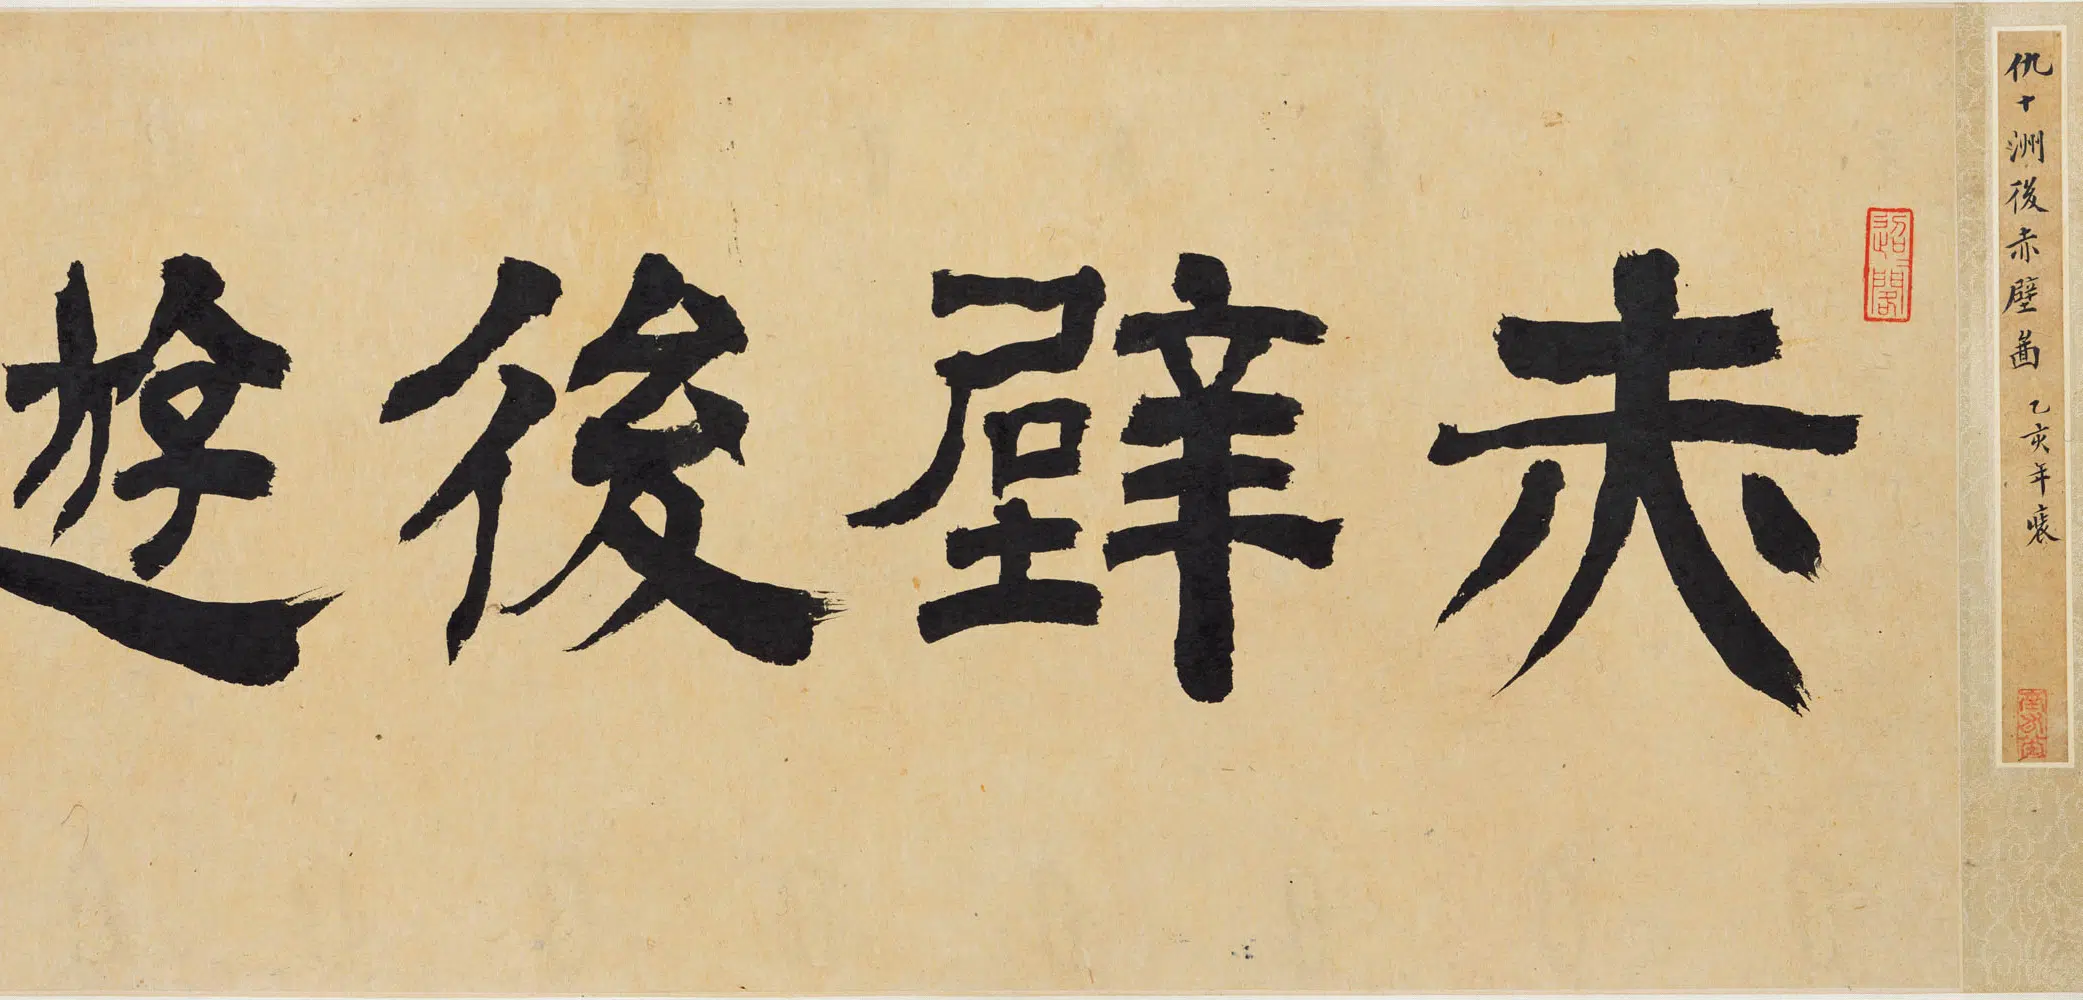 仇十洲後赤壁啚
乙亥年褱
赤壁後遊